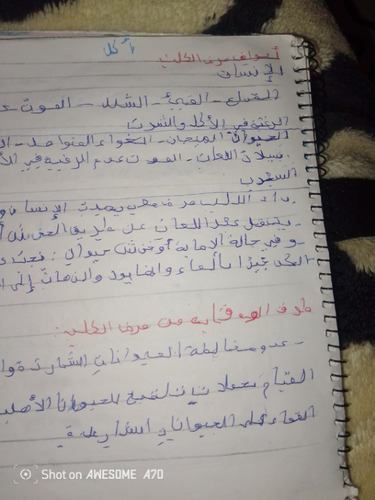 يأكل
أعراض مرض الكلب
الإنسان
القيئ - الشلل - الموت -
الرغبة في الأكل والشرب
الحيوان الهيجان - العواء المتواصل -
سيلان اللعاب - الموت عدم الرغبة في
الشرب
داء الكلب مرض يصيب الإنسان و
ينتقل عبر اللعاب عن طريق العض
و في حالة الإصابة حيوان
بالماء والصابون والذهاب إلى
طرق الوقاية من مرض الكلب:
- عدم مخالطة الحيوانات الشاردة و
القيام بحملات تلقيح للحيوانات
القضاء على الحيوانات الشاردة
Shot on AWESOME A70